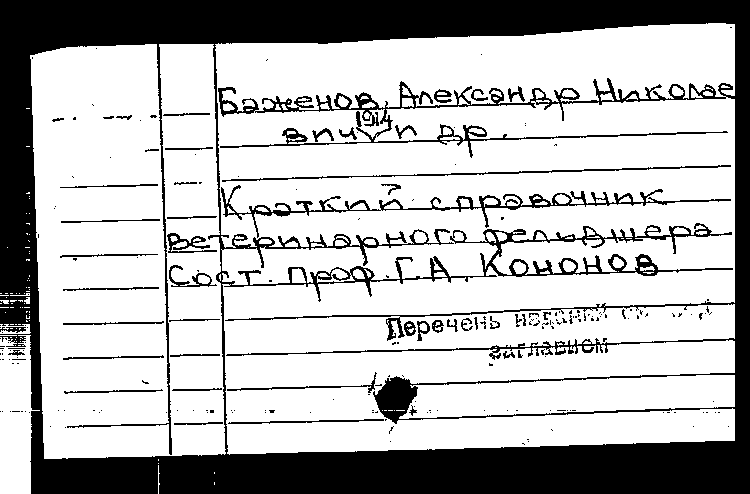 Баженов, Александр Николае
вич 1914 и др.
Краткий справочник
ветеринарного фельдшера
Сост. проф. Г.А. Кононов.
Перечень изданий см. под
заглавием